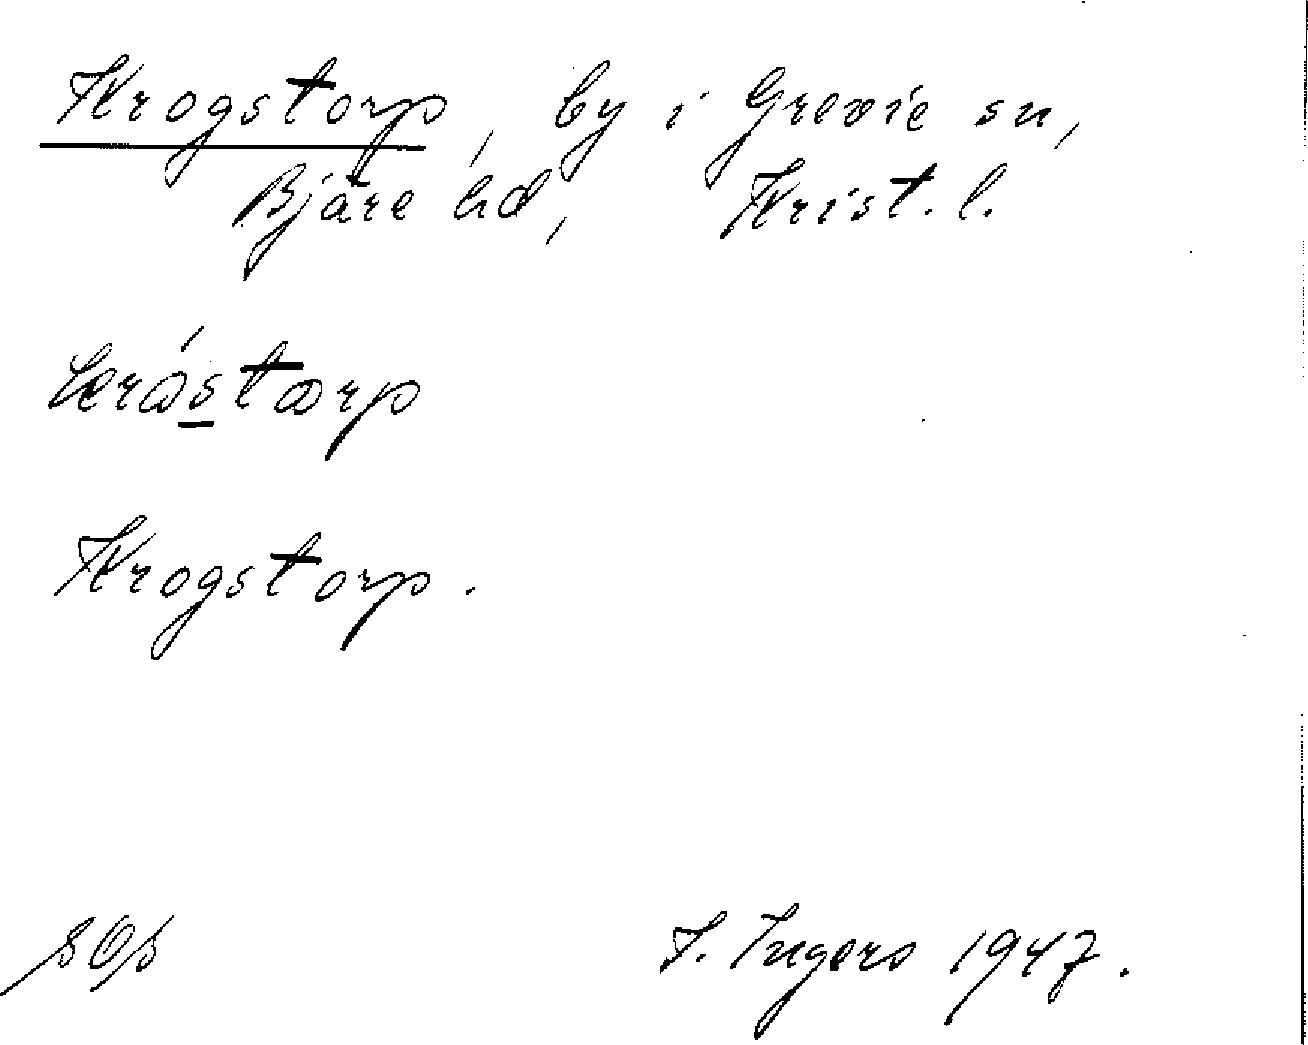 Krogstorp, by i Grevie sn,
Bjäre hd, Krist. l.
Krogstorp.
I. Ingers 1947.